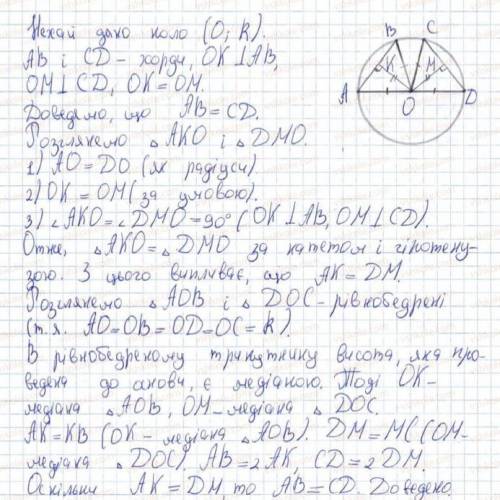 Нехай дано коло (О; R).
АВ і CD – хорди, ОК⊥АВ,
ОМ⊥CD, ОК=ОМ.
Доведемо, що АВ=CD.
Розглянемо △АКО і △DMO.
1) АО=DO (як радіуси).
2) ОК=ОМ (за умовою).
3) ∠АКО=∠DMO=90° (ОК⊥АВ, ОМ⊥CD).
Отже, △АКО=△DMO за катетом і гіпотену-
зою. З цього випливає, що АК=DM.
Розглянемо △АОВ і △DOC – рівнобедрені
(т.я. АО=ОВ=OD=OC=R).
В рівнобедреному трикутнику висота, яка про-
ведена до основи, є медіаною. Тоді ОК-
медіана △АОВ, ОМ – медіана △DOC.
АК=КВ (ОК – медіана △АОВ). DM=MC (ОМ-
медіана △DOC). АВ=2АК, CD=2DM.
Оскільки АК=DM, то АВ=CD. Доведено.
B C
K M
A O D